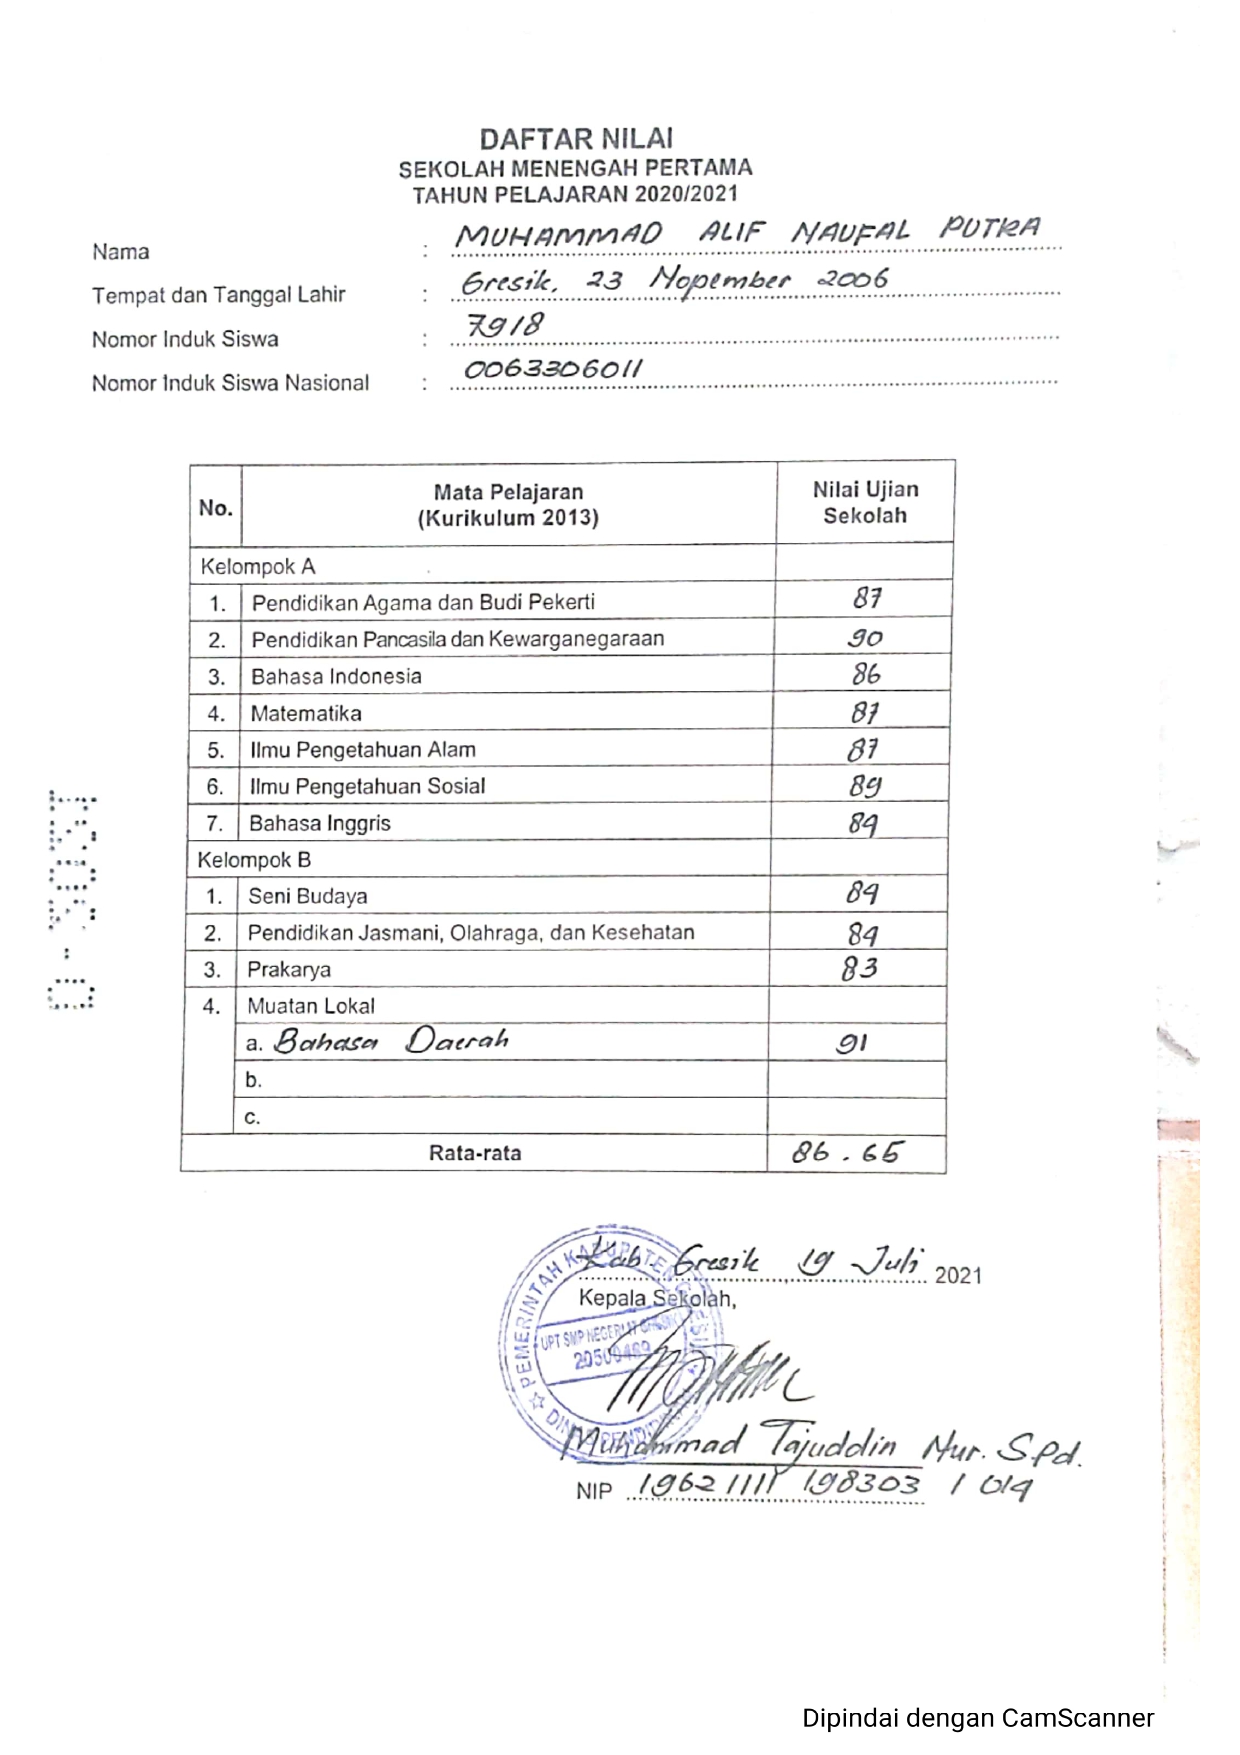 DAFTAR NILAI
SEKOLAH MENENGAH PERTAMA
TAHUN PELAJARAN 2020/2021
Nama : MUHAMMAD ALIF NAUFAL PUTRA
Tempat dan Tanggal Lahir : Gresik, 23 Nopember 2006
Nomor Induk Siswa : 7918
Nomor Induk Siswa Nasional : 0063306011
No. Mata Pelajaran (Kurikulum 2013) Nilai Ujian Sekolah
Kelompok A
1. Pendidikan Agama dan Budi Pekerti 87
2. Pendidikan Pancasila dan Kewarganegaraan 90
3. Bahasa Indonesia 86
4. Matematika 87
5. Ilmu Pengetahuan Alam 87
6. Ilmu Pengetahuan Sosial 89
7. Bahasa Inggris 84
Kelompok B
1. Seni Budaya 84
2. Pendidikan Jasmani, Olahraga, dan Kesehatan 84
3. Prakarya 83
4. Muatan Lokal
a. Bahasa Daerah 91
b.
c.
Rata-rata 86.65
Kab. Gresik 19 Juli 2021
Kepala Sekolah,
PEMERINTAH KABUPATEN GRESIK
UPT SMP NEGERI
DINAS PENDIDIKAN
Muhammad Tajuddin Nur. S.Pd.
NIP 19621111 198303 1 014
Dipindai dengan CamScanner